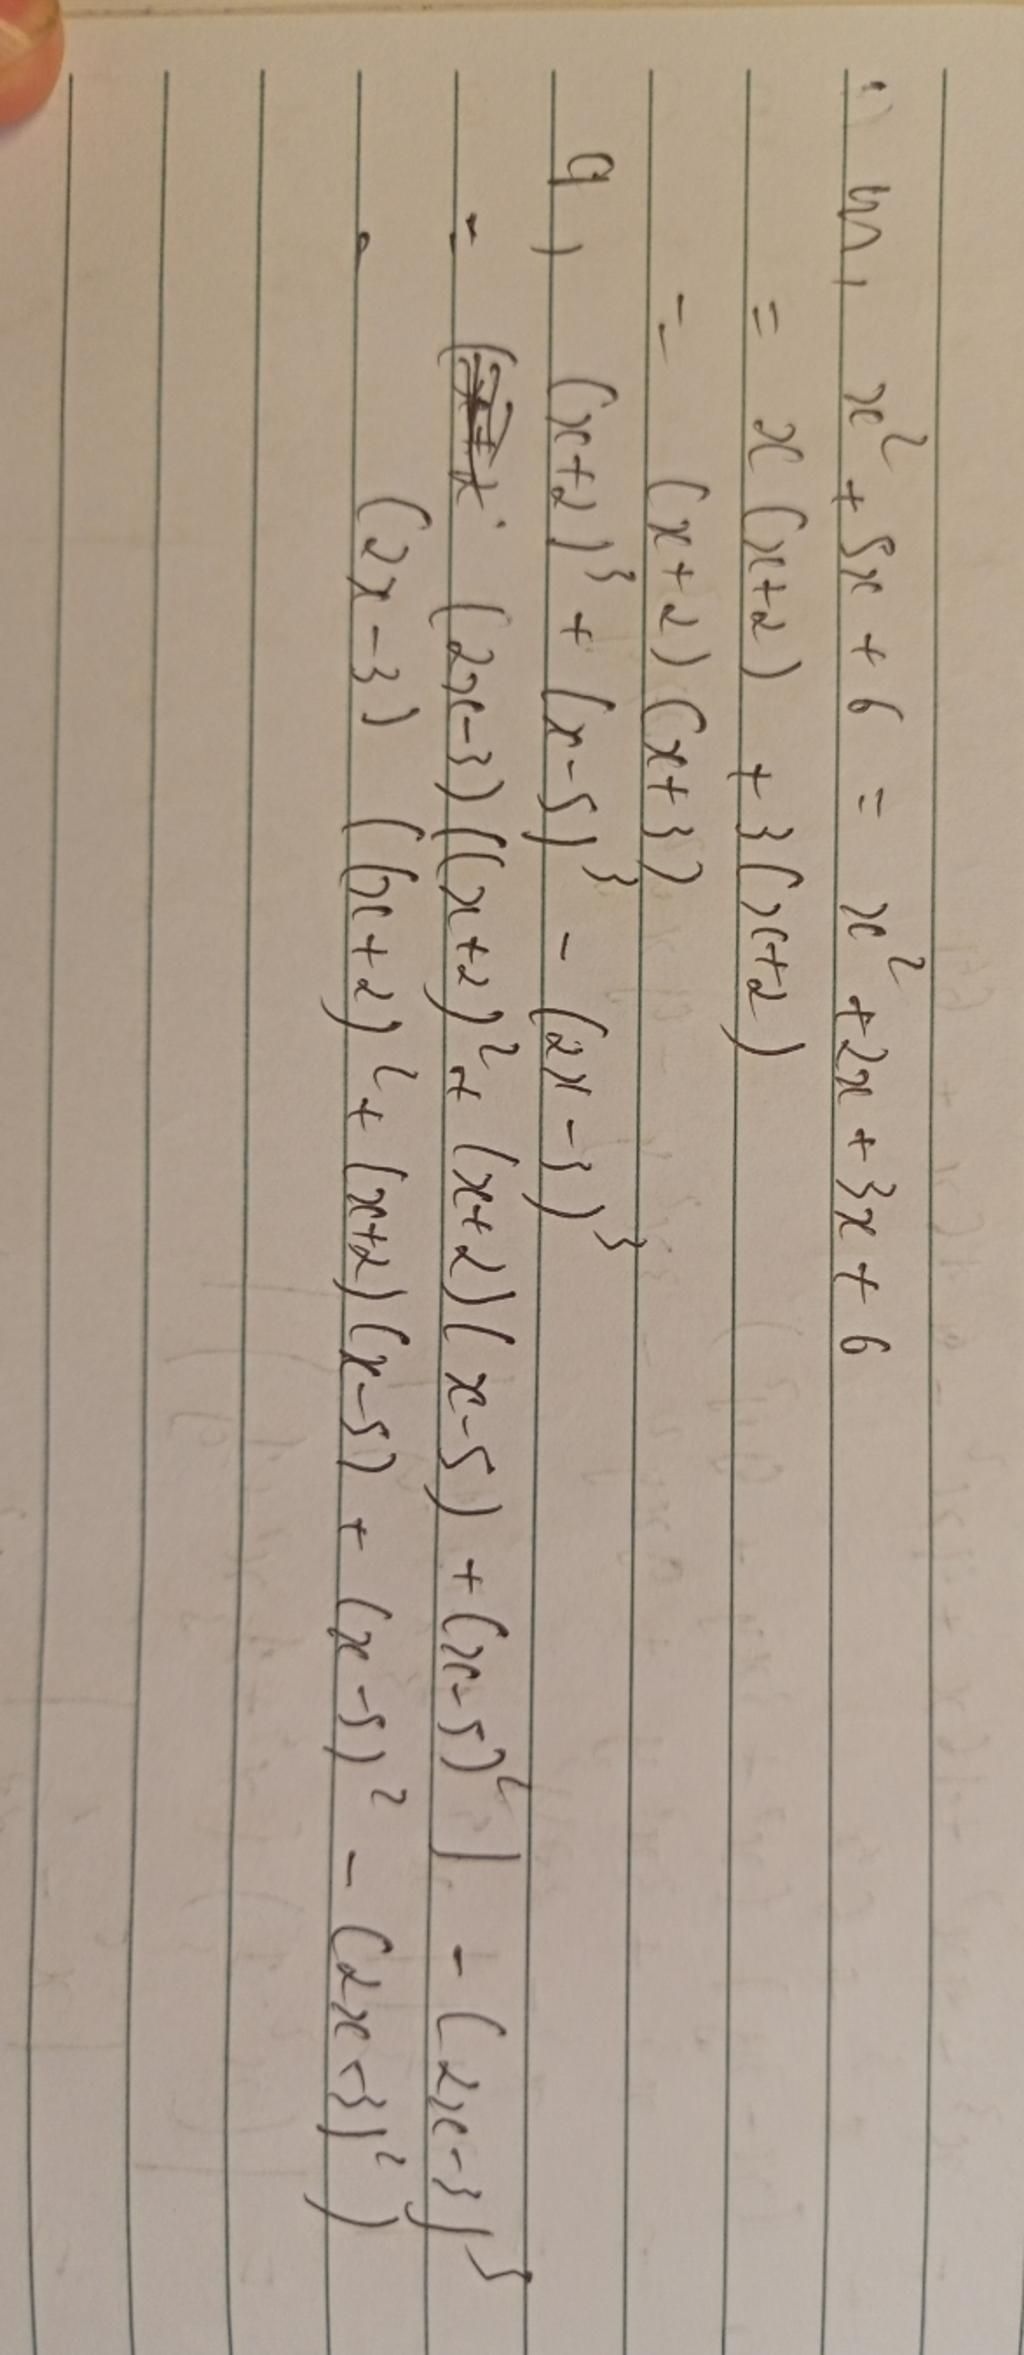 m, x² + 5x + 6 = x² + 2x + 3x + 6
= x (x+2) + 3(x+2)
= (x+2) (x+3)
q, (x+2)³ + (x-5)³ - (2x-3)³
= (2x-3)((x+2)² + (x+2)(x-5) + (x-5)²] - (2x-3)³
(2x-3) ((x+2)² + (x+2)(x-5) + (x-5)² - (2x-3)²)